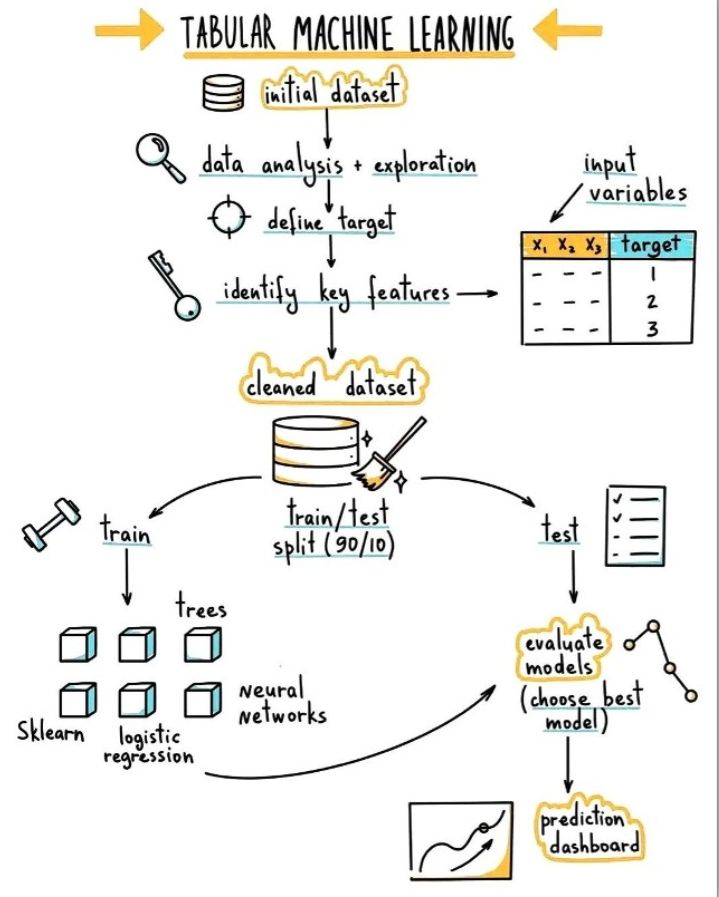 TABULAR MACHINE LEARNING
initial dataset
data analysis + exploration
define target
identify key features
input
variables
X₁ X₂ X₃ target
- - - 1
- - - 2
- - - 3
cleaned dataset
train/test
split (90/10)
train
test
trees
Neural
Networks
Sklearn
logistic
regression
evaluate
models
(choose best
model)
prediction
dashboard